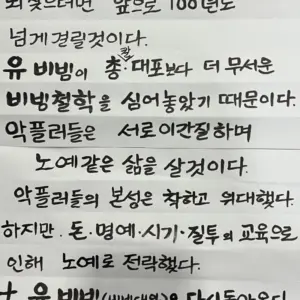 되찾으려면 앞으로 100년도
넘게 걸릴것이다.
유 비빔이 총·칼·대포보다 더 무서운
비빔철학을 심어놓았기 때문이다.
악플러들은 서로이간질하며
노예같은 삶을 살것이다.
악플러들의 본성은 착하고 위대했다.
하지만·돈·명예·시기·질투의 교육으로
인해 노예로 전락했다.
유 비빔